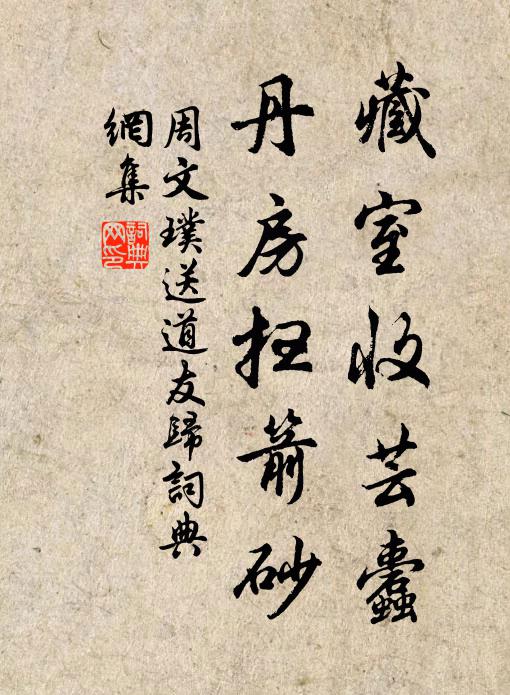 藏室收芸蠹
丹房扫箭砂
周文璞送道友歸詞典
網集
詞典网印